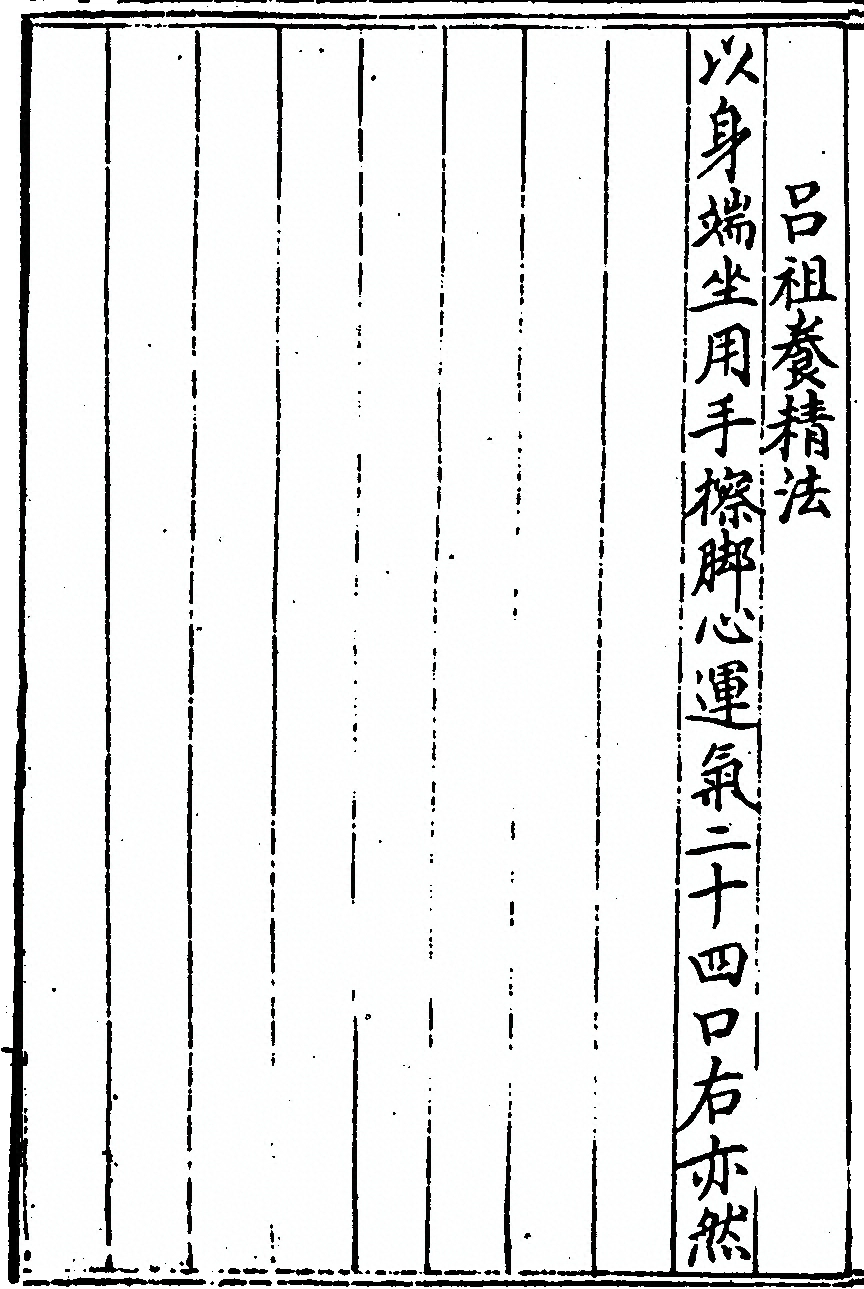 吕祖養精法
以身端坐用手擦脚心運氣二十四口右亦然